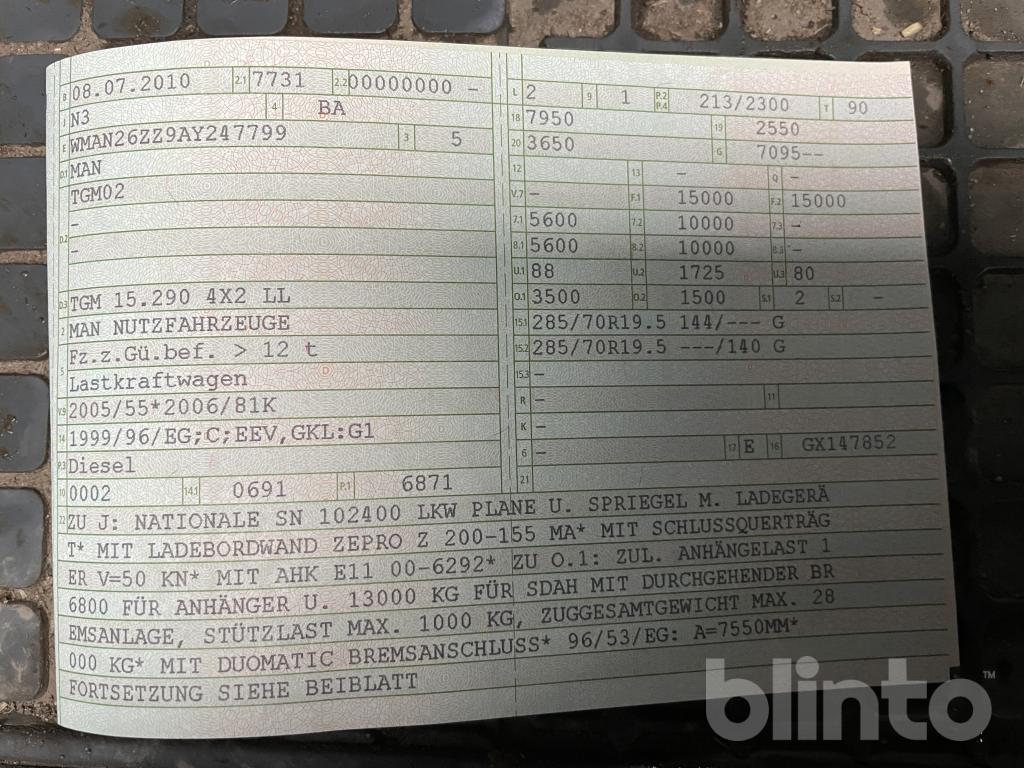 B 08.07.2010 2.1 7731 2.2 00000000 -
J N3 4 BA
E WMAN26ZZ9AY247799 3 5
D.1 MAN
TGM02
-
D.2 -
D.3 TGM 15.290 4X2 LL
2 MAN NUTZFAHRZEUGE
Fz.z.Gü.bef. > 12 t
5 Lastkraftwagen
V.9 2005/55*2006/81K
14 1999/96/EG;C;EEV,GKL:G1
P.3 Diesel
10 0002 14.1 0691 P.1 6871
L 2 9 1 P.2 P.4 213/2300 T 90
18 7950 19 2550
20 3650 G 7095--
12 13 - Q -
V.7 - F.1 15000 F.2 15000
7.1 5600 7.2 10000 7.3 -
8.1 5600 8.2 10000 8.3 -
U.1 88 U.2 1725 U.3 80
O.1 3500 O.2 1500 S.1 2 S.2 -
15.1 285/70R19.5 144/--- G
15.2 285/70R19.5 ---/140 G
15.3 -
R - 11
K -
6 - 17 E 16 GX147852
21
22 ZU J: NATIONALE SN 102400 LKW PLANE U. SPRIEGEL M. LADEGERÄ
T* MIT LADEBORDWAND ZEPRO Z 200-155 MA* MIT SCHLUSSQUERTRÄG
ER V=50 KN* MIT AHK E11 00-6292* ZU O.1: ZUL. ANHÄNGELAST 1
6800 FÜR ANHÄNGER U. 13000 KG FÜR SDAH MIT DURCHGEHENDER BR
EMSANLAGE, STÜTZLAST MAX. 1000 KG, ZUGGESAMTGEWICHT MAX. 28
000 KG* MIT DUOMATIC BREMSANSCHLUSS* 96/53/EG: A=7550MM*
FORTSETZUNG SIEHE BEIBLATT
blinto™